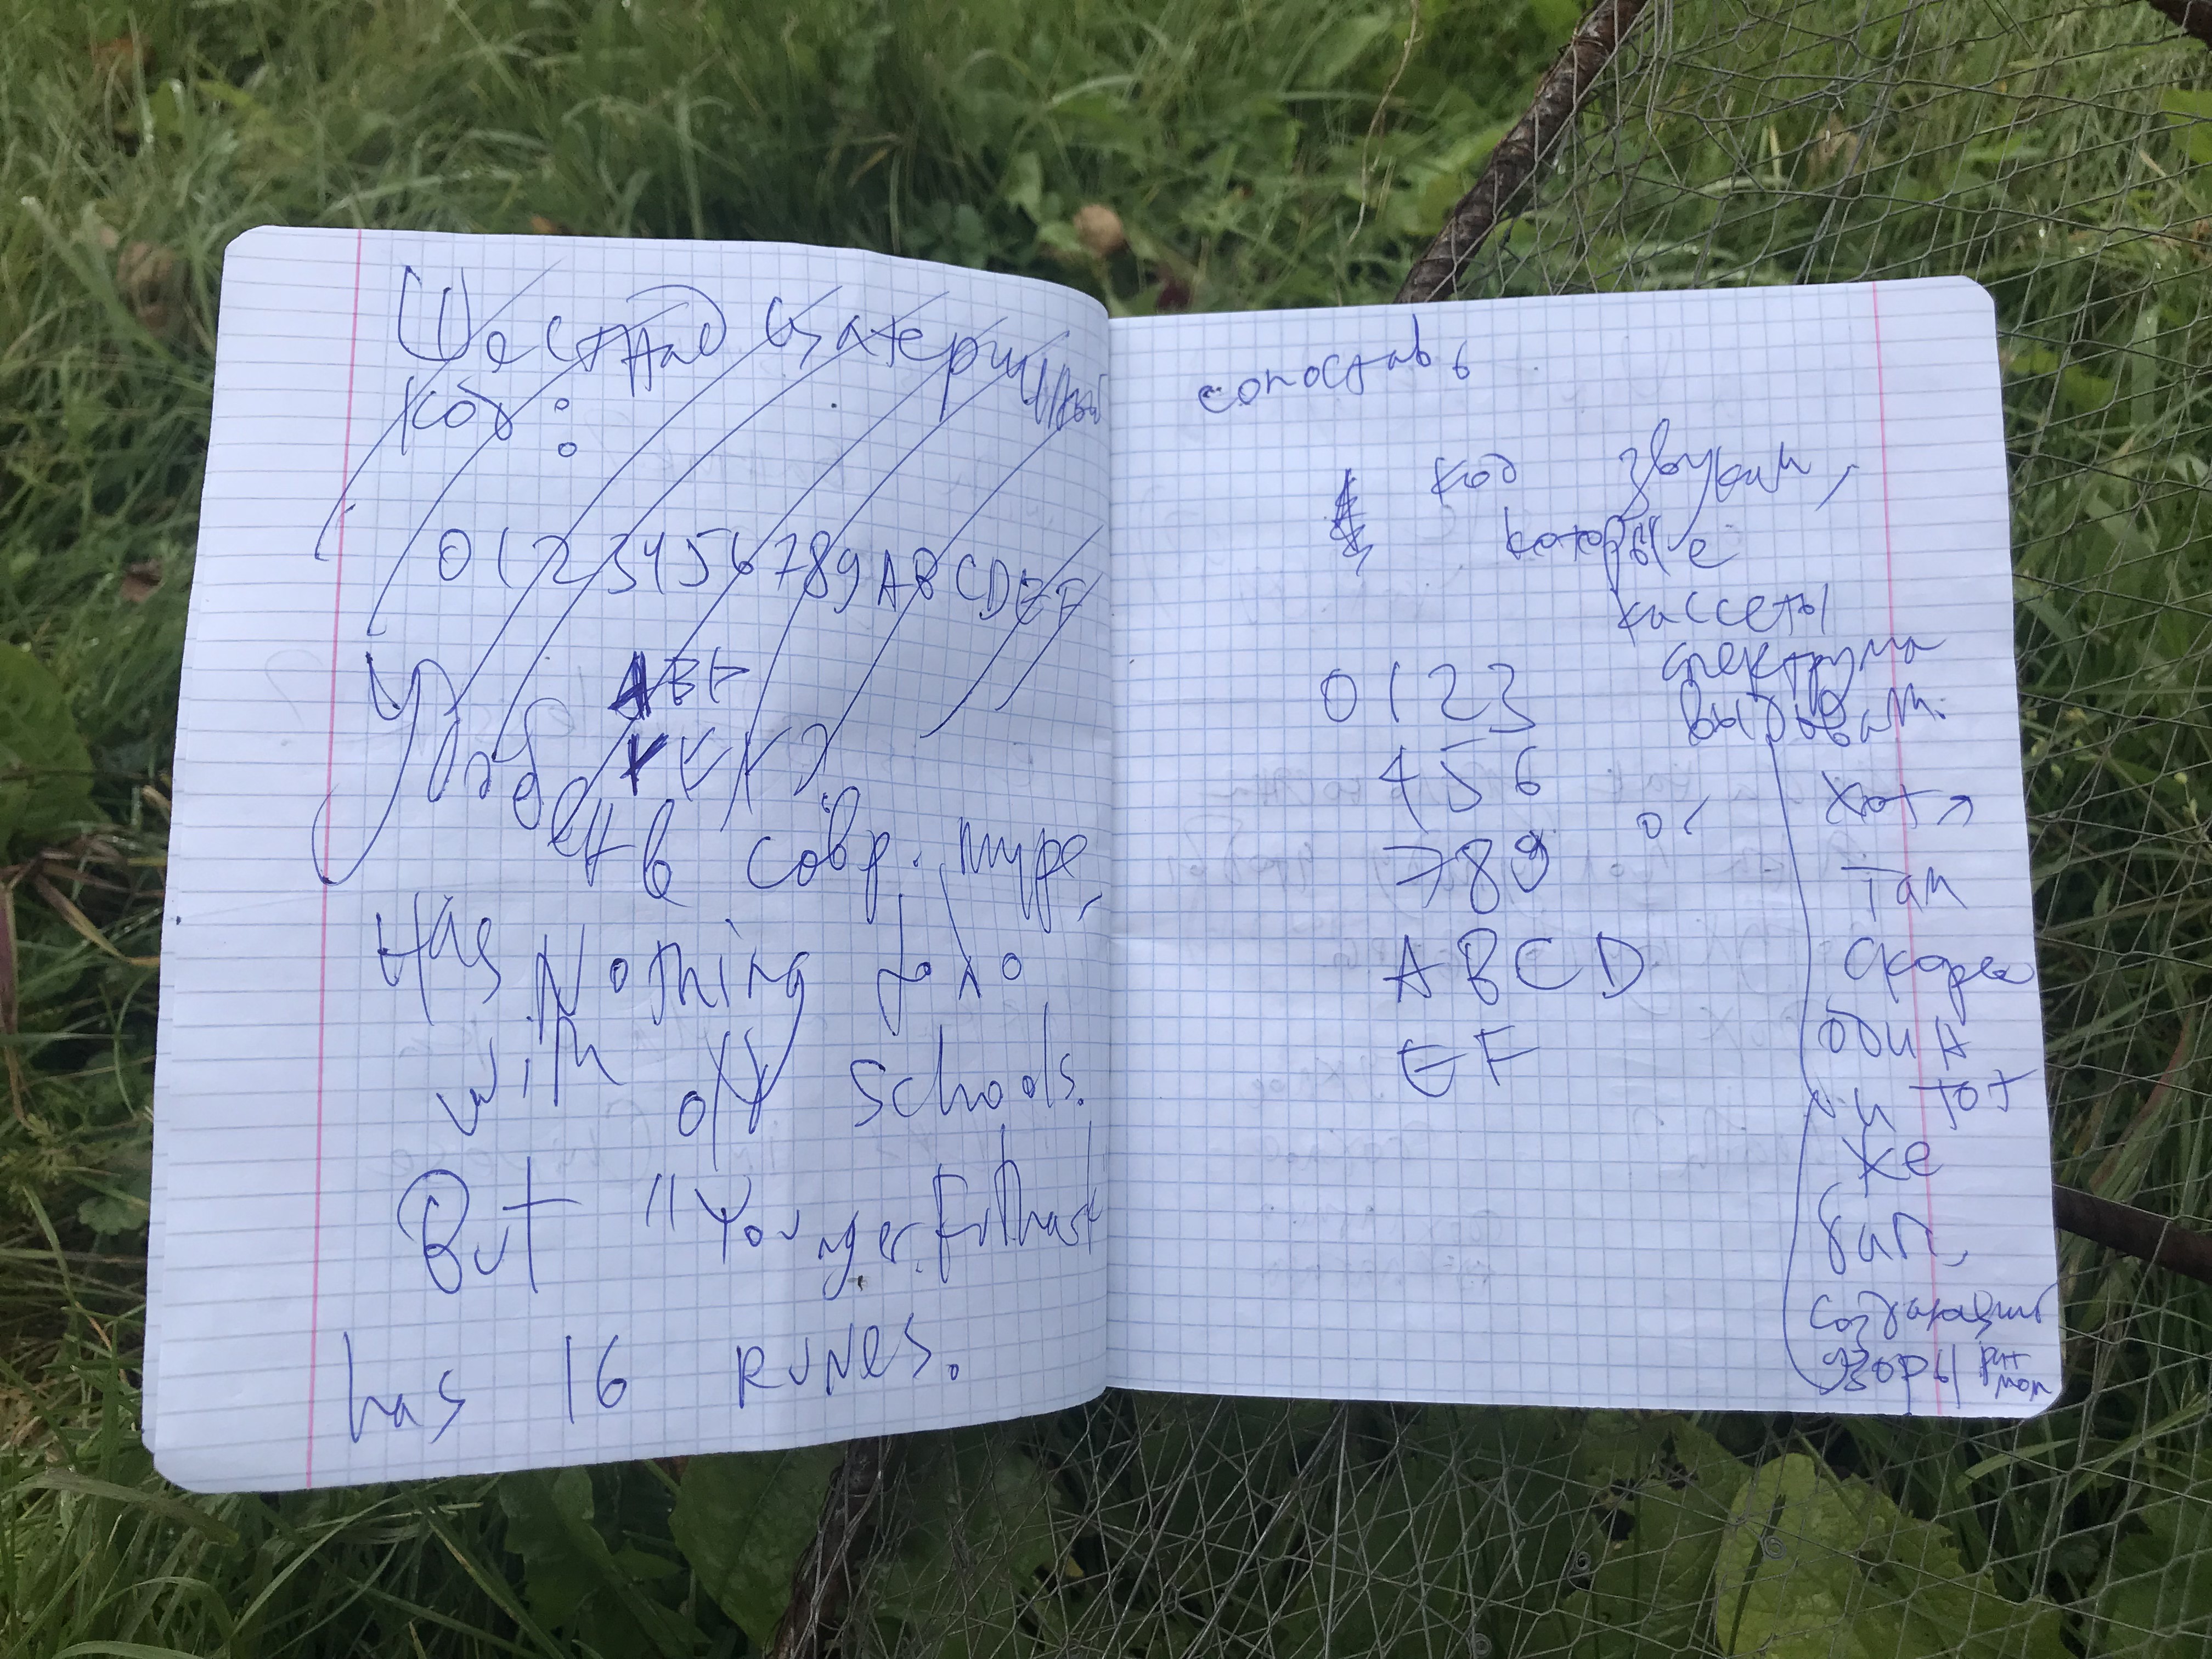 Шестнадцатеричный
код:
0123456789ABCDEF
ABF
в совр. мире,
Has Nothing to do
with old schools.
But "Younger Futhark"
has 16 RUNES.
сопоставь
код звукам,
которые
кассеты
спектрума
выдавали.
0123
456
789 or
ABCD
EF
Хотя
там
скорее
один
и тот
же
бап,
создающий
узоры ритмом